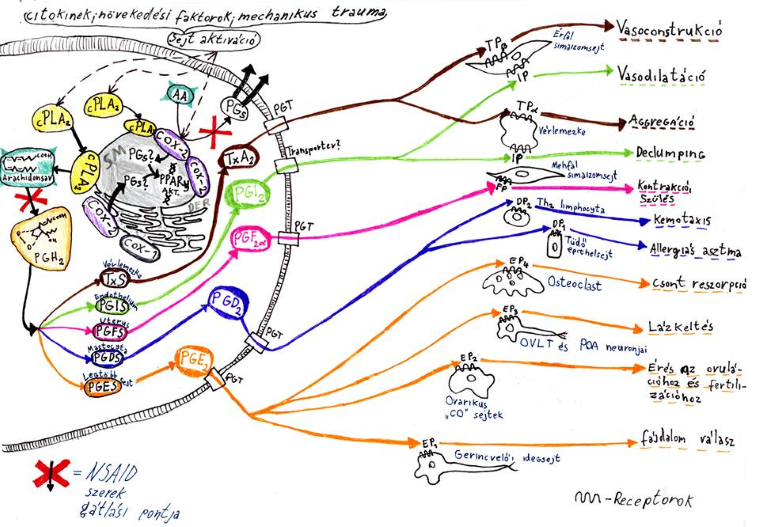 citokinek, növekedési faktorok, mechanikus trauma
Sejt aktiváció
cPLA2
cPLA2
cPLA2
cPLA2
AA
PGs
COX-2
COX-2
COX-2
COX-1
SM
PGs?
PGs?
PPARγ
AKT.
DER
COOH
COOH
Arachidonsav
COOH
PGH2
Vérlemezke
TxS
Endothelium
PGIS
Uterus
PGFS
Mastocyta
PGDS
Legtöbb sejt
PGES
TxA2
PGI2
PGF2α
PGD2
PGE2
PGT
Transporter?
PGT
PGT
PGT
TPβ
Érfal simaizomsejt
IP
Vasoconstrukció
Vasodilatáció
TPα
Vérlemezke
IP
Aggregáció
Declumping
Méhfal
simaizomsejt
FP
Kontrakció
Szülés
DP2
Th2 limphocyta
Kemotaxis
DP1
Tüdő
epithelsejt
Allergiás asztma
EP4
Osteoclast
Csont reszorpció
EP3
OVLT és POA neuronjai
Láz keltés
EP2
Ovarikus
„CO" sejtek
Érés az ovulá-
cióhoz és fertili-
zációhoz
EP1
Gerincvelői idegsejt
fájdalom válasz
= NSAID
szerek
gátlási pontja
-Receptorok